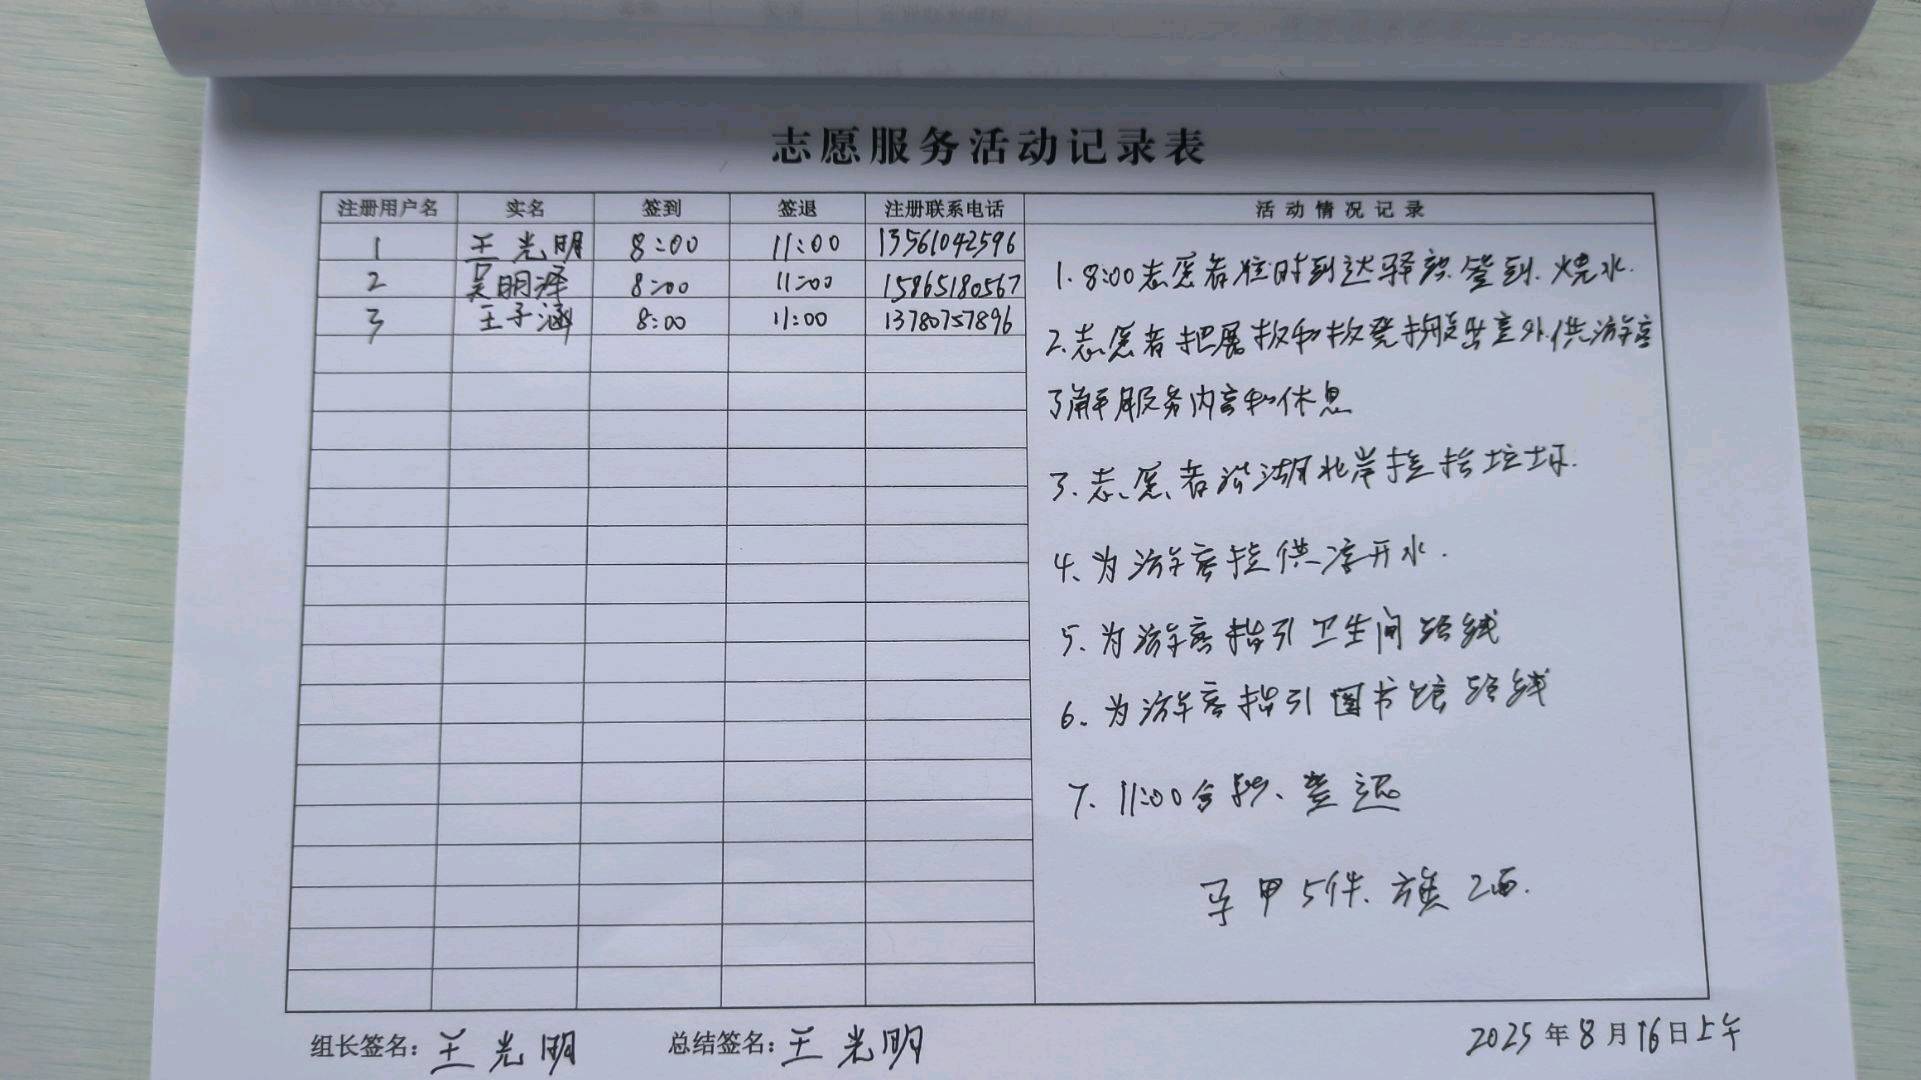 志愿服务活动记录表
注册用户名 实名 签到 签退 注册联系电话 活动情况记录
1 王光明 8:00 11:00 13561042596
2 吴明泽 8:00 11:00 15865180567
3 王子涵 8:00 11:00 13780757896
1. 8:00志愿者准时到达驿站.签到.烧水.
2.志愿者把展板和板凳搬出室外.供游客
了解服务内容和休息
3.志愿者沿湖北岸捡拾垃圾.
4、为游客提供凉开水.
5、为游客指引卫生间路线
6、为游客指引图书馆路线
7、11:00合影、签退
马甲5件.旗2面.
组长签名:王光明 总结签名:王光明 2025年8月16日上午